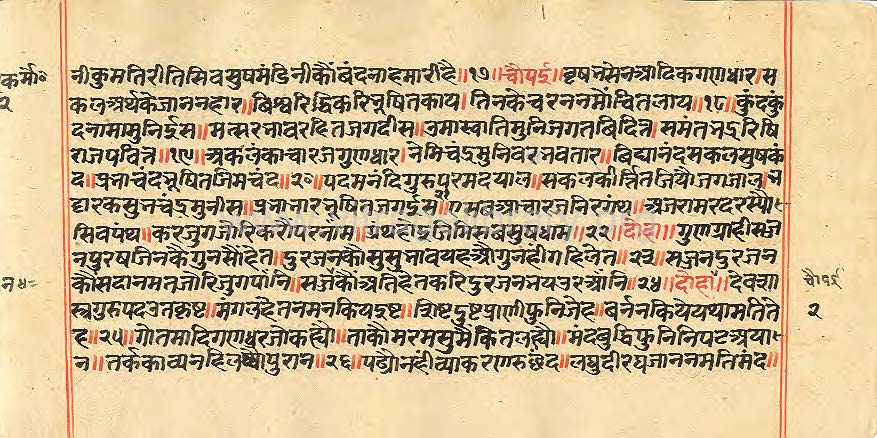 नीकुमतिरीतिसिवसुषमंडिनीकौंबंदनाहमारीहै॥१७॥चौपई॥वृषनसेनआदिकगणधार।स
कलअर्थकेजाननहार।बिश्वरिद्धिकरिनूषितकाय।तिनकेचरननमौंचितलाय॥१८॥कुंदकुं
दनामामुनिईस॥मत्सरनावरहितजगदीस॥उमास्वातिमुनिजगतबिदित्र॥समंतनद्ररिषि
राजपवित्र॥१९॥अकलंकाचारजगुणधार।नेमिचंद्रमुनिवरनवतार॥बिद्यानंदसकलसुषकं
द॥प्रनाचंदनूषितजिमचंद॥२०॥पदमनंदिगुरुपरमदयाल॥सकलकीर्त्तिजियौजगजाल॥न
ट्टारकसुनचंद्रमुनीस॥प्रनानारनूषितजगईस॥एसबआचारजनिरग्रंथ॥अजरामरदरस्यौ
सिवपंथ॥करजुगजोरिकरौंपरनाम॥ग्रंथहोइजिमिसबसुषधाम॥२२॥दोहा॥गुणग्राहीसज्ज
नपुरषजिनकैगुनसौंहेत॥दुरजनकौसुसुनावयहऔगुनहीगहिलेत॥२३॥सज्जनदुरजन
कौसदानमतजोरिजुगपांनि॥सज्जकौंअतिहेतकरिदुरजननयउरआंनि॥२४॥दोहा॥देवशा
स्त्रगुरुपदउतकृष्ट॥मंगलहेतनमनकियइष्ट॥शिष्टदुष्टप्राणीफुनिजेह॥बर्ननकियेयथामतिते
ह॥२५॥गोतमादिगणधरजोकह्यौ॥ताकौमरमसुमैंकितलह्यौ॥मंदबुद्धिफुनिनिपटअया
न॥तर्ककाव्यनहिलष्यौपुरान॥२६॥पढ्यौनहीव्याकरणरुछंद॥लघुदीरघजाननमतिमंद॥
कर्मा॰
२
न४
चौपई
२